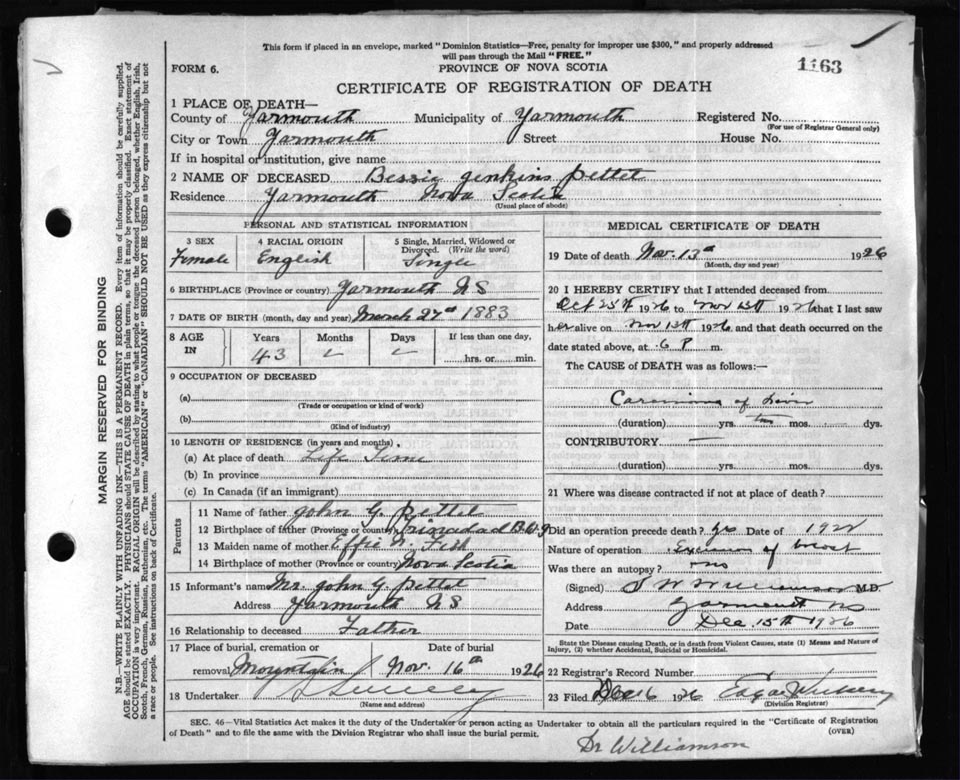 This form if placed in an envelope, marked "Dominion Statistics—Free, penalty for improper use $300," and properly addressed
will pass through the Mail "FREE."
FORM 6.
PROVINCE OF NOVA SCOTIA
1163
CERTIFICATE OF REGISTRATION OF DEATH
1 PLACE OF DEATH—
County of Yarmouth Municipality of Yarmouth Registered No.
(For use of Registrar General only)
City or Town Yarmouth Street House No.
If in hospital or institution, give name
2 NAME OF DECEASED Bessie Jenkins Pettet
Residence Yarmouth Nova Scotia
(Usual place of abode)
PERSONAL AND STATISTICAL INFORMATION
3 SEX 4 RACIAL ORIGIN 5 Single, Married, Widowed or
Divorced. (Write the word)
Female English Single
6 BIRTHPLACE (Province or country) Yarmouth N S
7 DATE OF BIRTH (month, day and year) March 27th 1883
8 AGE IN Years Months Days If less than one day,
43 hrs. or min.
9 OCCUPATION OF DECEASED
(a)
(Trade or occupation or kind of work)
(b)
(Kind of industry)
10 LENGTH OF RESIDENCE (in years and months)
(a) At place of death Life Time
(b) In province
(c) In Canada (if an immigrant)
Parents
11 Name of father John G. Pettet
12 Birthplace of father (Province or country) Trinadad
13 Maiden name of mother Effie
14 Birthplace of mother (Province or country) Nova Scotia
15 Informant's name Mr. John G. Pettet
Address Yarmouth N S
16 Relationship to deceased Father
17 Place of burial, cremation or Date of burial
removal Mountain Nov. 16th 1926
18 Undertaker
(Name and address)
MEDICAL CERTIFICATE OF DEATH
19 Date of death Nov. 13th 1926
(Month, day and year)
20 I HEREBY CERTIFY that I attended deceased from
Oct 25th 1926 to Nov 13th 1926 that I last saw
her alive on Nov 13th 1926, and that death occurred on the
date stated above, at 6 P m.
The CAUSE OF DEATH was as follows:—
Carcinoma of Liver
(duration) yrs. two mos. dys.
CONTRIBUTORY —
(duration) yrs. mos. dys.
21 Where was disease contracted if not at place of death?
Did an operation precede death? yes Date of 1922
Nature of operation Excision of breast
Was there an autopsy? no
(Signed) Williamson M.D.
Address Yarmouth NS
Date Dec. 15th 1926
State the Disease causing Death, or in death from Violent Causes, state (1) Means and Nature of
Injury, (2) whether Accidental, Suicidal or Homicidal.
22 Registrar's Record Number
23 Filed Dec 16 1926 Edgar
(Division Registrar)
SEC. 46—Vital Statistics Act makes it the duty of the Undertaker or person acting as Undertaker to obtain all the particulars required in the "Certificate of Registration
of Death" and to file the same with the Division Registrar who shall issue the burial permit.
(OVER)
Dr Williamson
MARGIN RESERVED FOR BINDING
N.B.—WRITE PLAINLY, WITH UNFADING INK—THIS IS A PERMANENT RECORD. Every item of information should be carefully supplied.
AGE should be stated EXACTLY. PHYSICIANS should STATE CAUSE OF DEATH in plain terms, so that it may be properly classified. Exact statement of
OCCUPATION is very important. RACIAL ORIGIN will be described by stating to what people or tongue the deceased person belonged, whether English, Irish,
Scotch, French, German, Russian, Ruthenian, etc. The terms "AMERICAN" or "CANADIAN" SHOULD NOT BE USED as they express citizenship but not
a race or people. See instructions on back of Certificate.